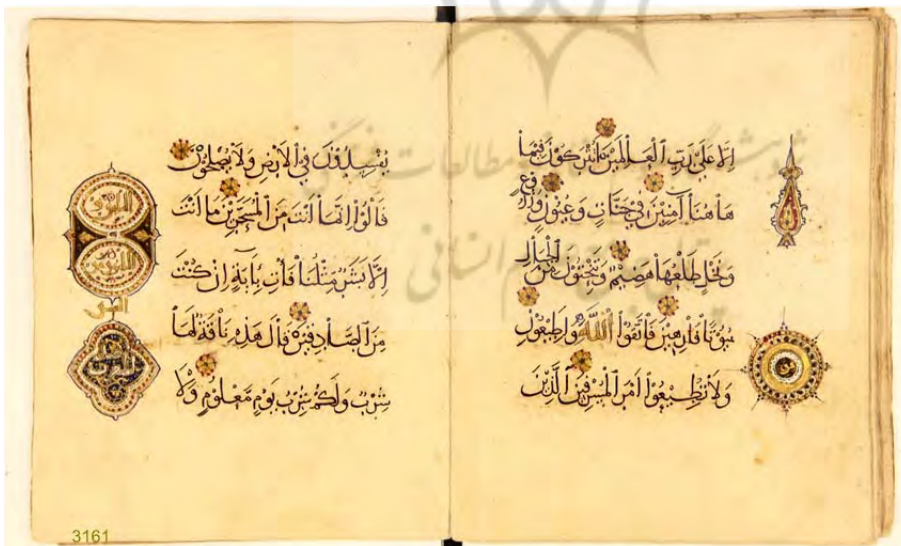 إِلَّا عَلَىٰ رَبِّ الْعَالَمِينَ أَتُتْرَكُونَ فِيمَا
هَاهُنَا آمِنِينَ فِي جَنَّاتٍ وَعُيُونٍ وَزُرُوعٍ
وَنَخْلٍ طَلْعُهَا هَضِيمٌ وَتَنْحِتُونَ مِنَ الْجِبَالِ
بُيُوتًا فَارِهِينَ فَاتَّقُوا اللَّهَ وَأَطِيعُونِ
وَلَا تُطِيعُوا أَمْرَ الْمُسْرِفِينَ الَّذِينَ
يُفْسِدُونَ فِي الْأَرْضِ وَلَا يُصْلِحُونَ
قَالُوا إِنَّمَا أَنْتَ مِنَ الْمُسَحَّرِينَ مَا أَنْتَ
إِلَّا بَشَرٌ مِثْلُنَا فَأْتِ بِآيَةٍ إِنْ كُنْتَ
مِنَ الصَّادِقِينَ قَالَ هَذِهِ نَاقَةٌ لَهَا
شِرْبٌ وَلَكُمْ شِرْبُ يَوْمٍ مَعْلُومٍ وَلَا
مطالعات فرهنگی
علوم انسانی
3161